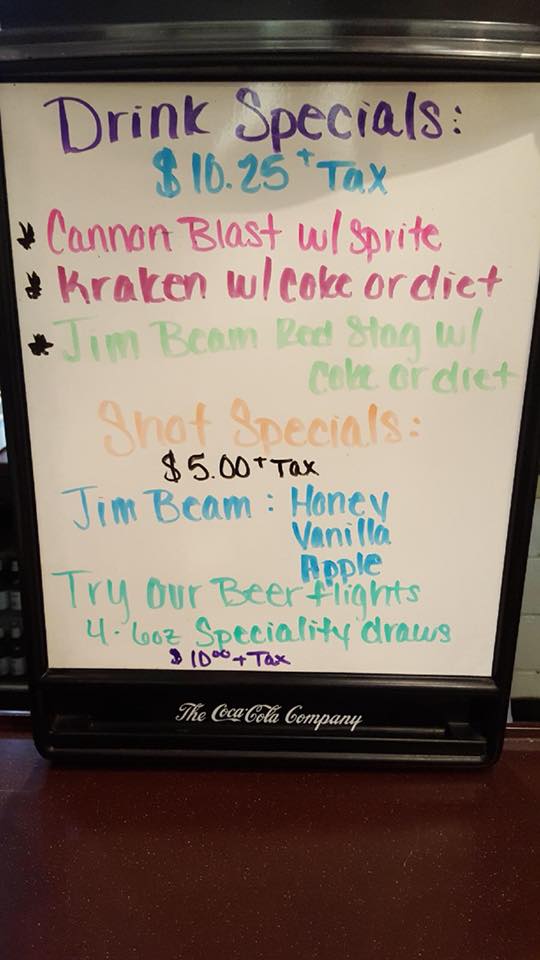 Drink Specials:
$10.25 + Tax
* Cannon Blast w/ Sprite
* Kraken w/ Coke or diet
* Jim Beam Red Stag w/
Coke or diet
Shot Specials:
$5.00 + Tax
Jim Beam: Honey
Vanilla
Apple
Try our Beer flights
4-6oz Speciality draws
$10⁰⁰ + Tax
The Coca-Cola Company